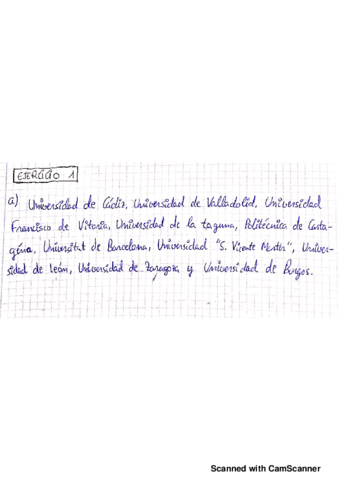 EJERCICIO 1
a) Universidad de Cádiz, Universidad de Valladolid, Universidad
Francisco de Vitoria, Universidad de la Laguna, Politécnica de Carta-
géna, Universitat de Barcelona, Universidad "S. Vicente Martir", Univer-
sidad de León, Universidad de Zaragoza y Universidad de Burgos.
Scanned with CamScanner